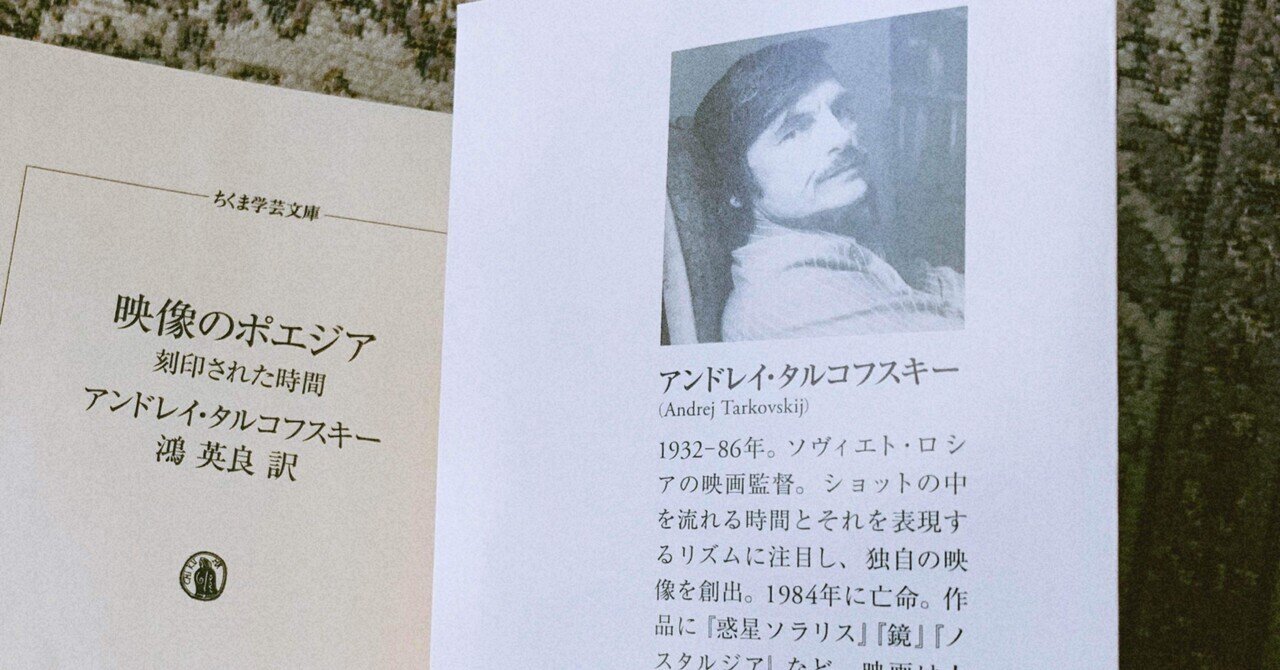 ちくま学芸文庫
映像のポエジア
刻印された時間
アンドレイ・タルコフスキー
鴻 英良 訳
アンドレイ・タルコフスキー
(Andrej Tarkovskij)
1932-86年。ソヴィエト・ロシ
アの映画監督。ショットの中
を流れる時間とそれを表現す
るリズムに注目し、独自の映
像を創出。1984年に亡命。作
品に『惑星ソラリス』『鏡』『ノ
スタルジア』など。映画は人